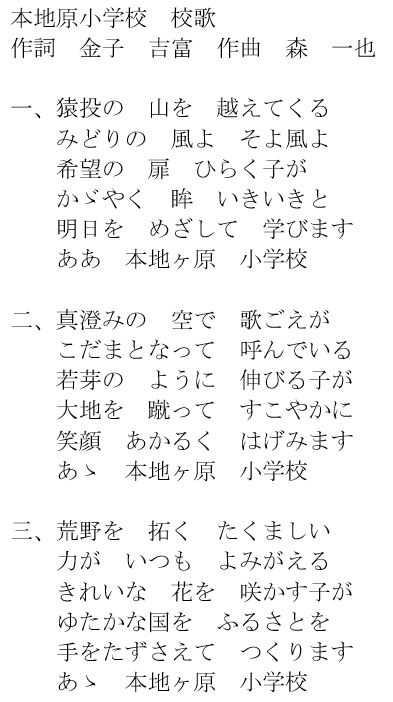 本地原小学校　校歌
作詞　金子　吉富　作曲　森　一也
一、猿投の　山を　越えてくる
みどりの　風よ　そよ風よ
希望の　扉　ひらく子が
かゞやく　眸　いきいきと
明日を　めざして　学びます
ああ　本地ヶ原　小学校
二、真澄みの　空で　歌ごえが
こだまとなって　呼んでいる
若芽の　ように　伸びる子が
大地を　蹴って　すこやかに
笑顔　あかるく　はげみます
あゝ　本地ヶ原　小学校
三、荒野を　拓く　たくましい
力が　いつも　よみがえる
きれいな　花を　咲かす子が
ゆたかな国を　ふるさとを
手をたずさえて　つくります
あゝ　本地ヶ原　小学校